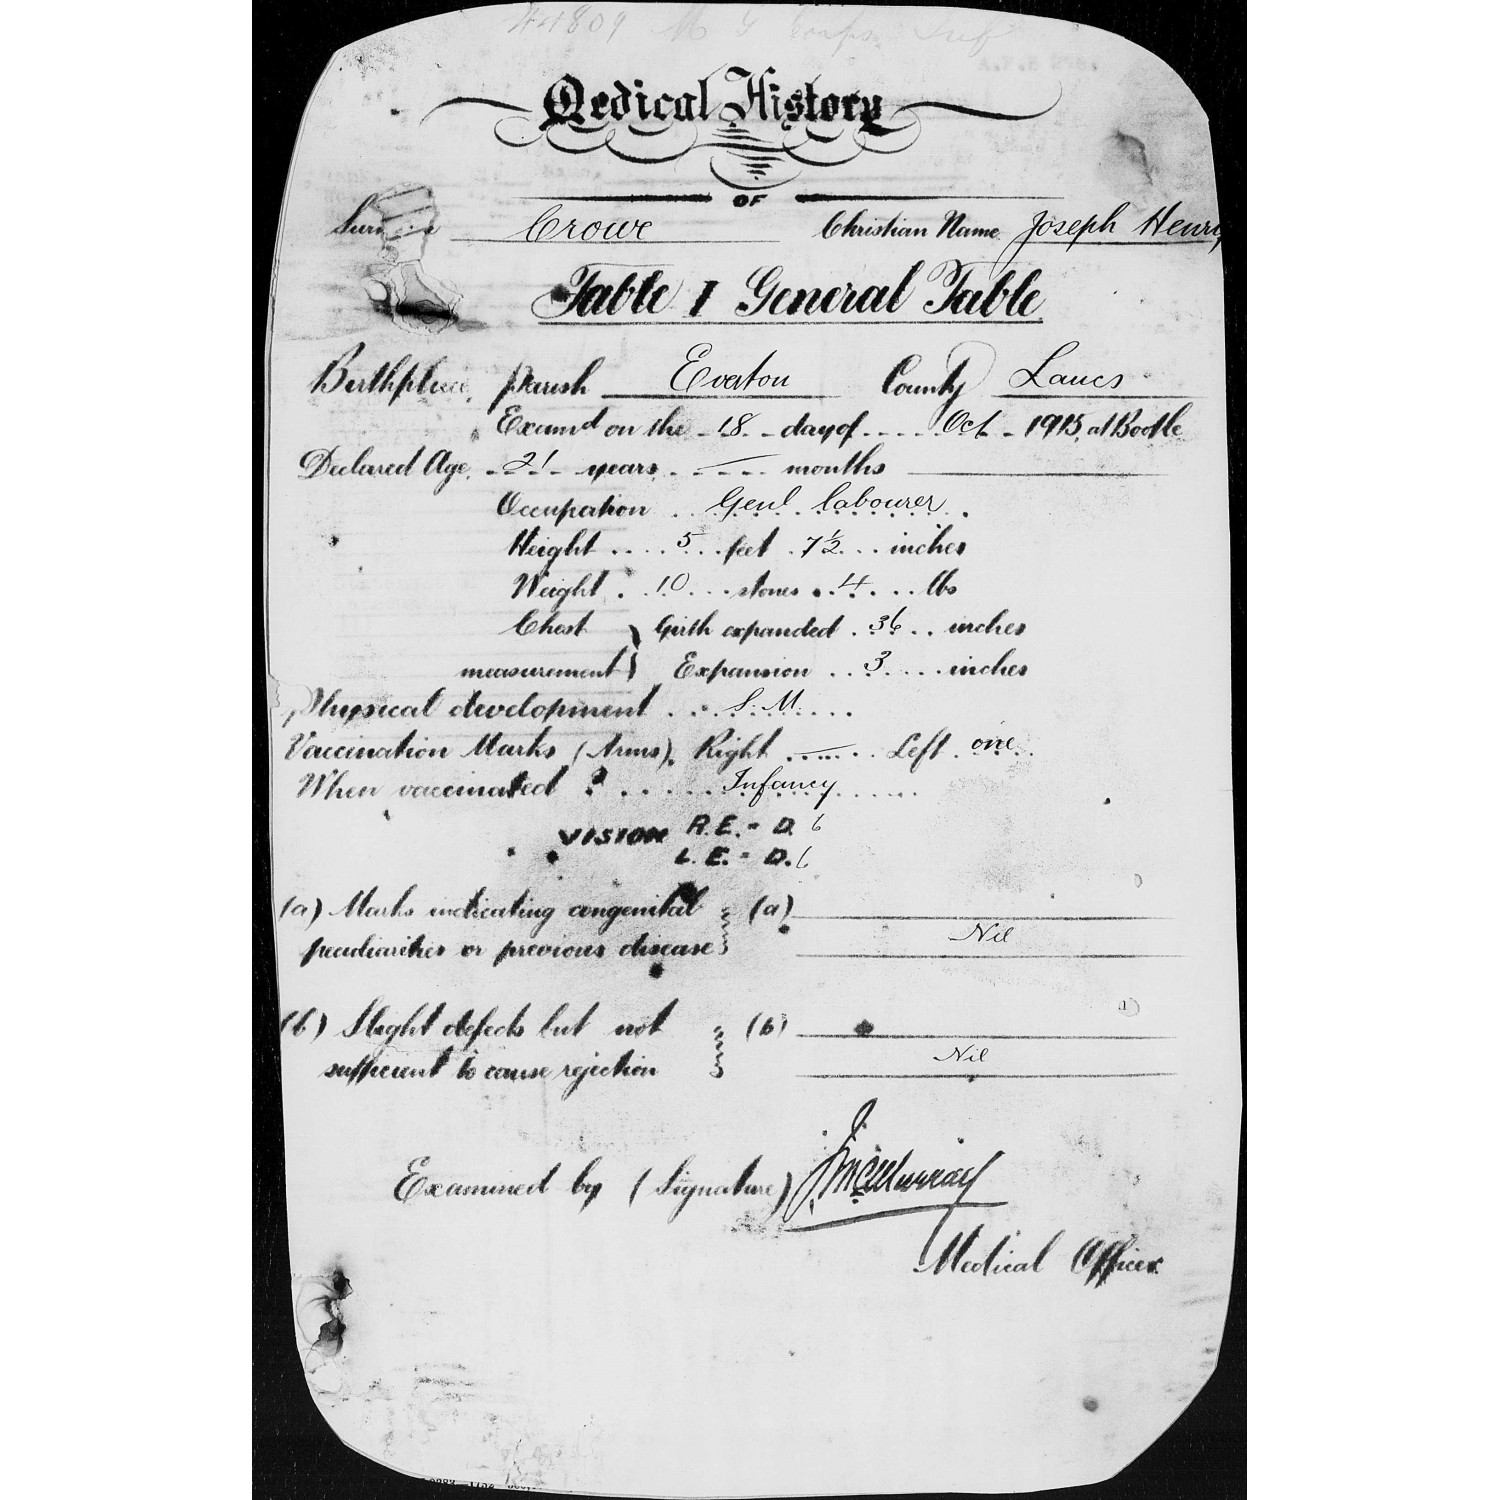 Medical History
OF
Surname Crowe Christian Name Joseph Henry
Table I General Table
Birthplace, Parish Everton County Lancs
Examd on the 18 day of Oct 1915, at Bootle
Declared Age 21 years — months
Occupation Genl labourer
Height 5 feet 7½ inches
Weight 10 stones 4 lbs
Chest } Girth expanded 36 inches
measurement } Expansion 3 inches
Physical development S. M.
Vaccination Marks (Arms), Right — Left one
When vaccinated ? Infancy
VISION R.E. = D. 6
L.E. = D. 6
(a) Marks indicating congenital (a)
peculiarities or previous disease Nil
(b) Slight defects but not (b)
sufficient to cause rejection Nil
Examined by (Signature) J. McMurray
Medical Officer